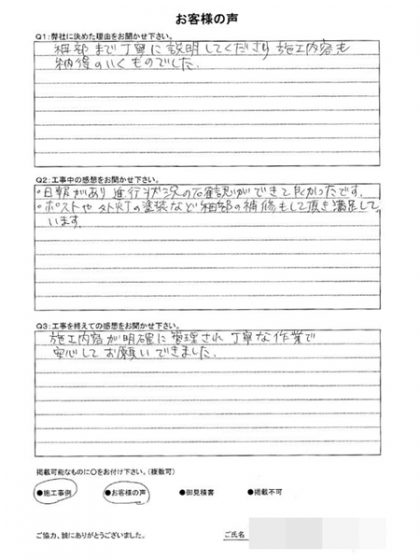 お客様の声
Q1：弊社に決めた理由をお聞かせ下さい。
細部まで丁寧に説明してくださり施工内容も
納得のいくものでした.
Q2：工事中の感想をお聞かせ下さい。
・日報があり進行状況の確認ができて良かったです.
・ポストや外灯の塗装など細部の補修もして頂き満足して
います.
Q3：工事を終えての感想をお聞かせ下さい。
施工内容が明確に管理され丁寧な作業で
安心してお願いできました.
掲載可能なものに〇をお付け下さい。（複数可）
●施工事例 ●お客様の声 ●御見積書 ●掲載不可
ご協力、誠にありがとうございました。 ご氏名